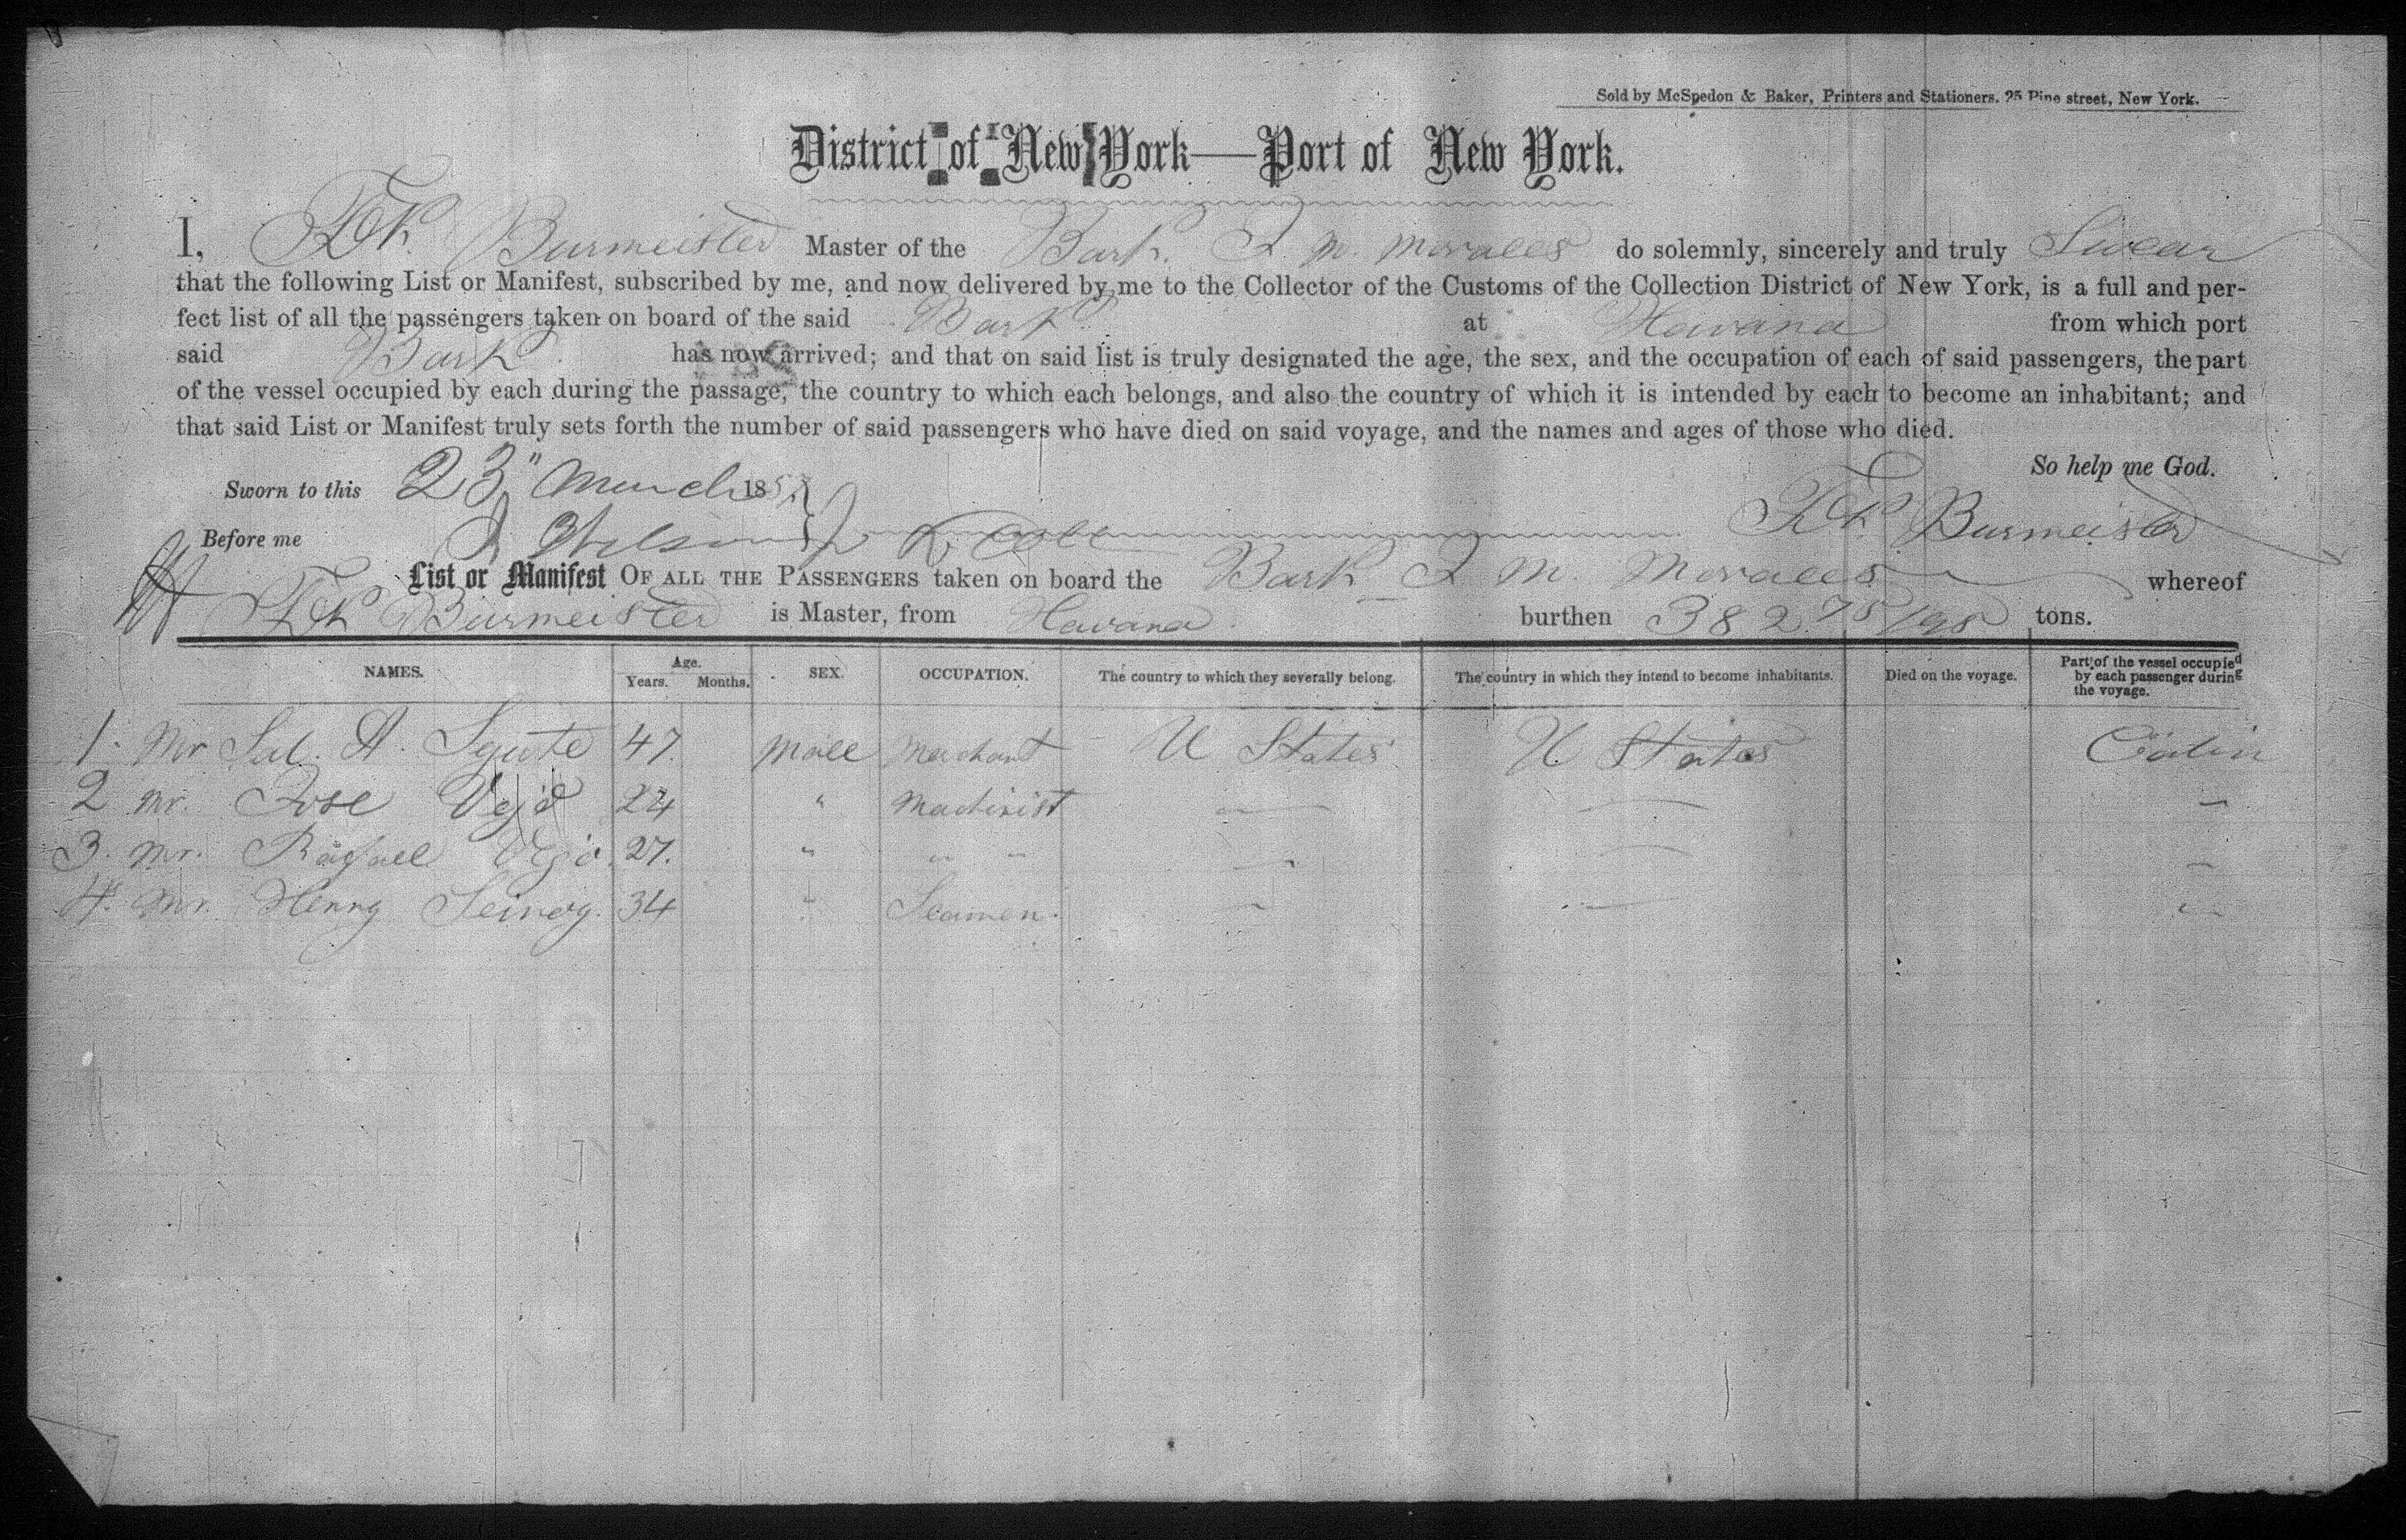 Sold by McSpedon & Baker, Printers and Stationers. 25 Pine street, New York.
District of New York—Port of New York.
I, Fdk. Burmeister Master of the Bark. J. M. Morales do solemnly, sincerely and truly Swear
that the following List or Manifest, subscribed by me, and now delivered by me to the Collector of the Customs of the Collection District of New York, is a full and per-
fect list of all the passengers taken on board of the said Bark at Havana from which port
said Bark has now arrived; and that on said list is truly designated the age, the sex, and the occupation of each of said passengers, the part
of the vessel occupied by each during the passage, the country to which each belongs, and also the country of which it is intended by each to become an inhabitant; and
that said List or Manifest truly sets forth the number of said passengers who have died on said voyage, and the names and ages of those who died.
So help me God.
Sworn to this 23" March 185
Before me Fdk Burmeister
List or Manifest OF ALL THE PASSENGERS taken on board the Bark J. M. Morales whereof
Fdk Burmeister is Master, from Havana burthen 382 tons.
NAMES. Age. Years. Months. SEX. OCCUPATION. The country to which they severally belong. The country in which they intend to become inhabitants. Died on the voyage. Part of the vessel occupied by each passenger during the voyage.
1. Mr A. 47. Male Merchant U States U States Cabin
2 Mr. Jose 24 " Machinist — — "
3. Mr. Rafael 27. " " " — — "
4. Mr. Henry 34 " Seamen. — — "